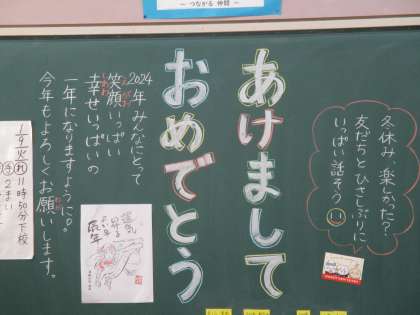 ～つながる 仲間～
冬休み、楽しかった？
友だちとひさしぶりに、
いっぱい話そう
あけまして
おめでとう
2024年みんなにとって
笑顔いっぱい
えがお
幸せいっぱいの
しあわ
一年になりますように。
今年もよろしくお願いします。
ねが
辰年
1/9(火)
11時50分下校